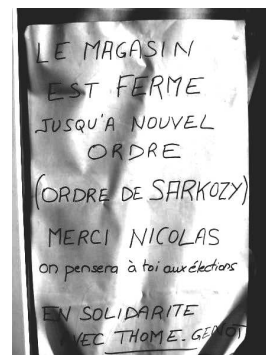 LE MAGASIN
EST FERME
JUSQU'A NOUVEL
ORDRE
(ORDRE DE SARKOZY)
MERCI NICOLAS
on pensera à toi aux élections
EN SOLIDARITE
AVEC THOME-GENOT